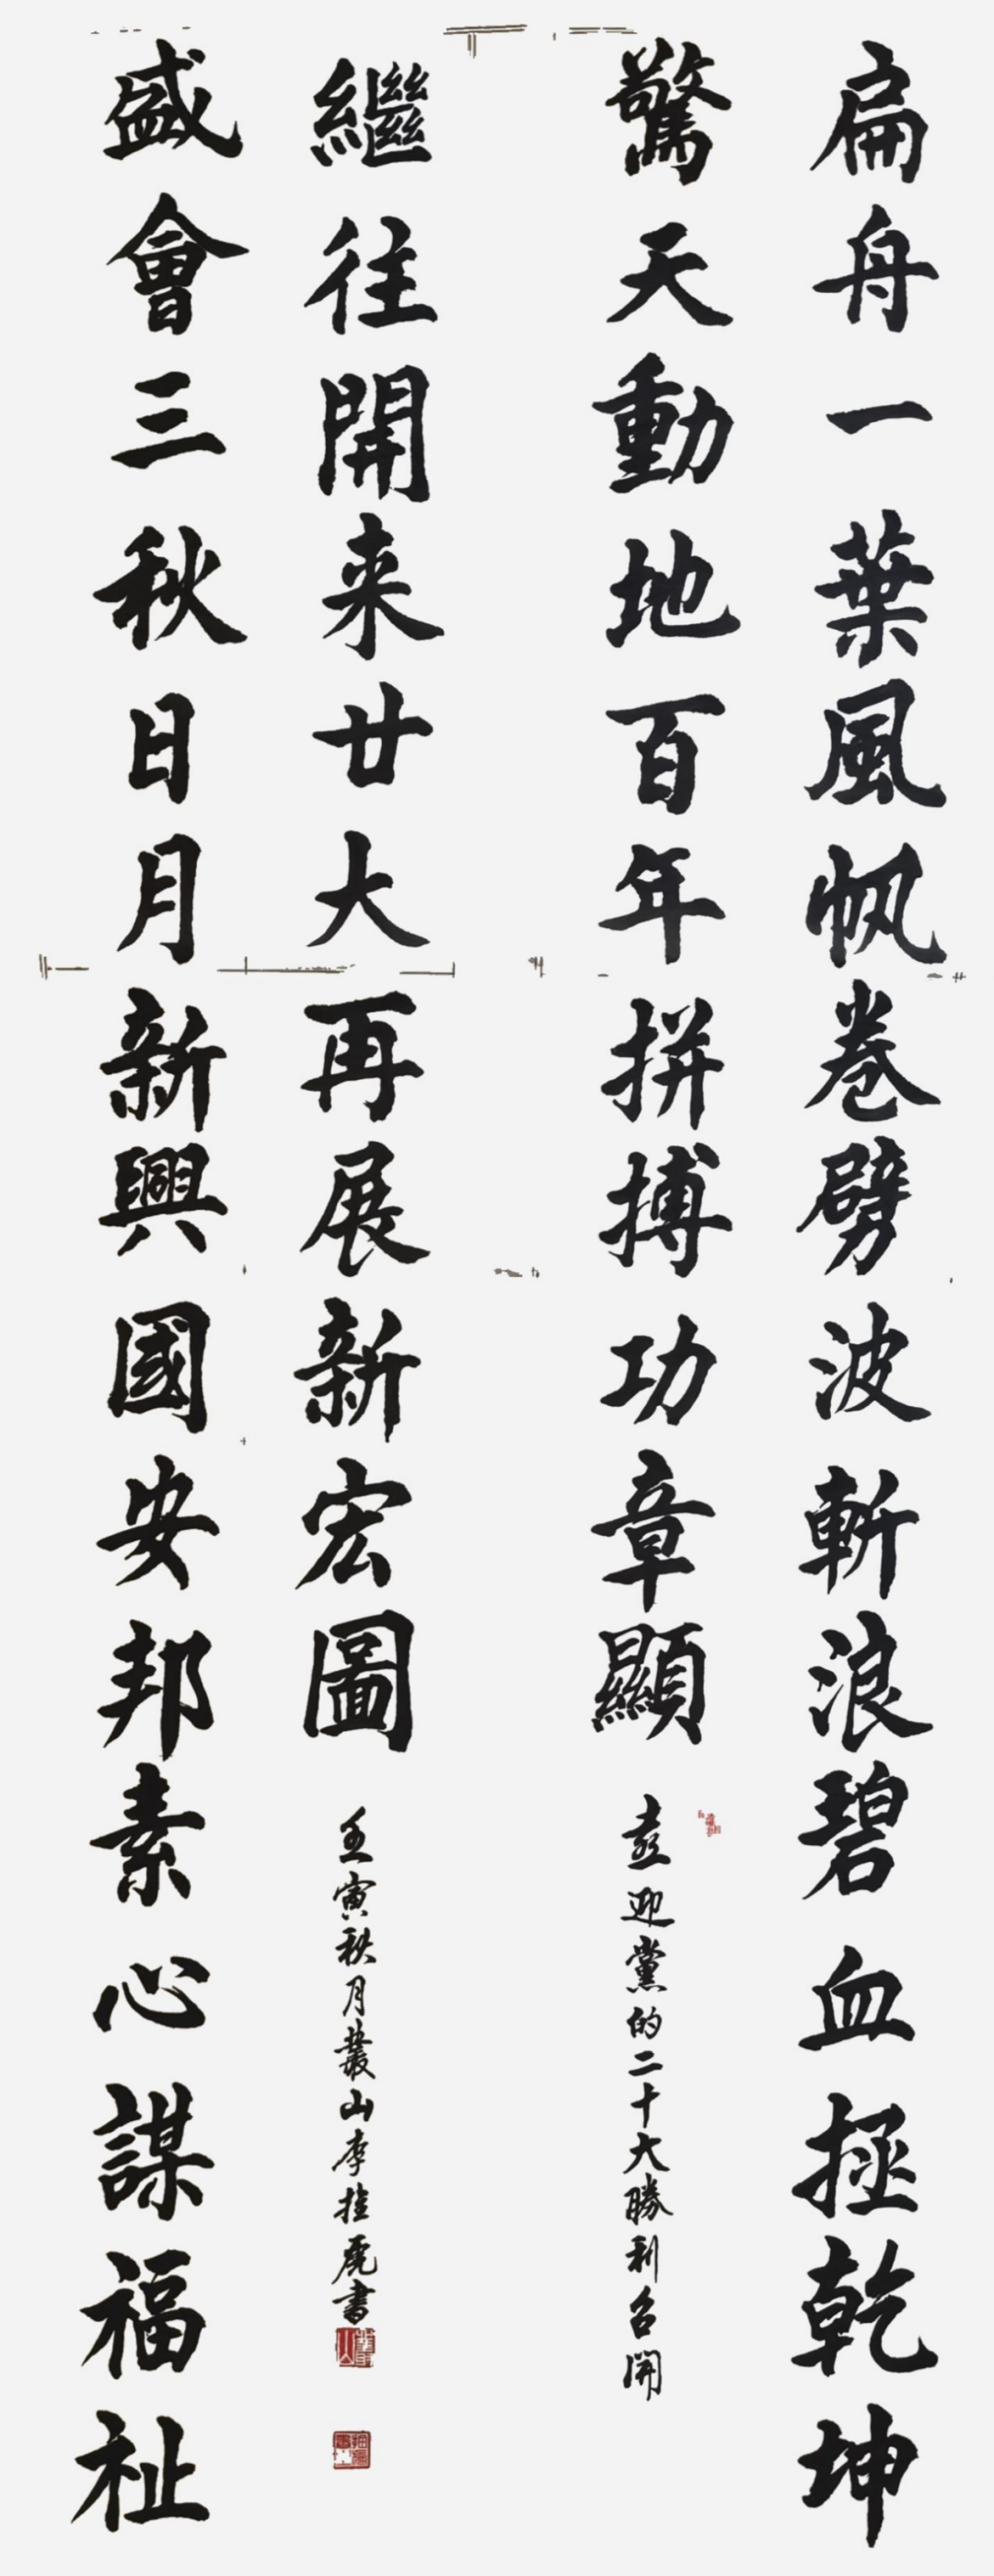 扁舟一葉風帆卷劈波斬浪碧血拯乾坤
驚天動地百年拼搏功章顯
喜迎黨的二十大勝利召開
盛會三秋日月新興國安邦素心謀福祉
繼往開来廿大再展新宏圖
壬寅秋月叢山李虎書